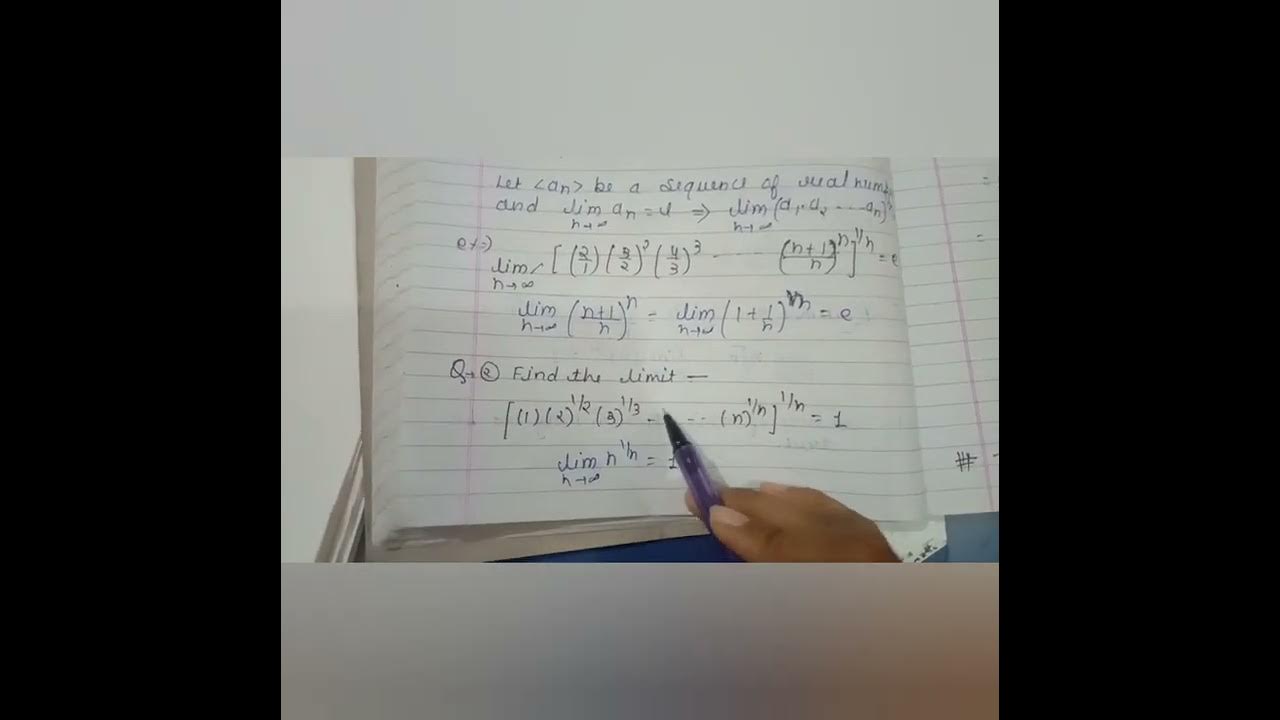 Let <an> be a sequence of real num
and lim n→∞ an = l ⇒ lim n→∞ (a1. a2 ---- an)
ex⇒) lim n→∞ [(2/1)(3/2)²(4/3)³ ------ ((n+1)/n)^n]^1/n = e
lim n→∞ ((n+1)/n)^n = lim n→∞ (1+1/n)^n = e
Q→② Find the limit —
[(1)(2)^1/2(3)^1/3 ----- (n)^1/n]^1/n = 1
lim n→∞ n^1/n = 1
#